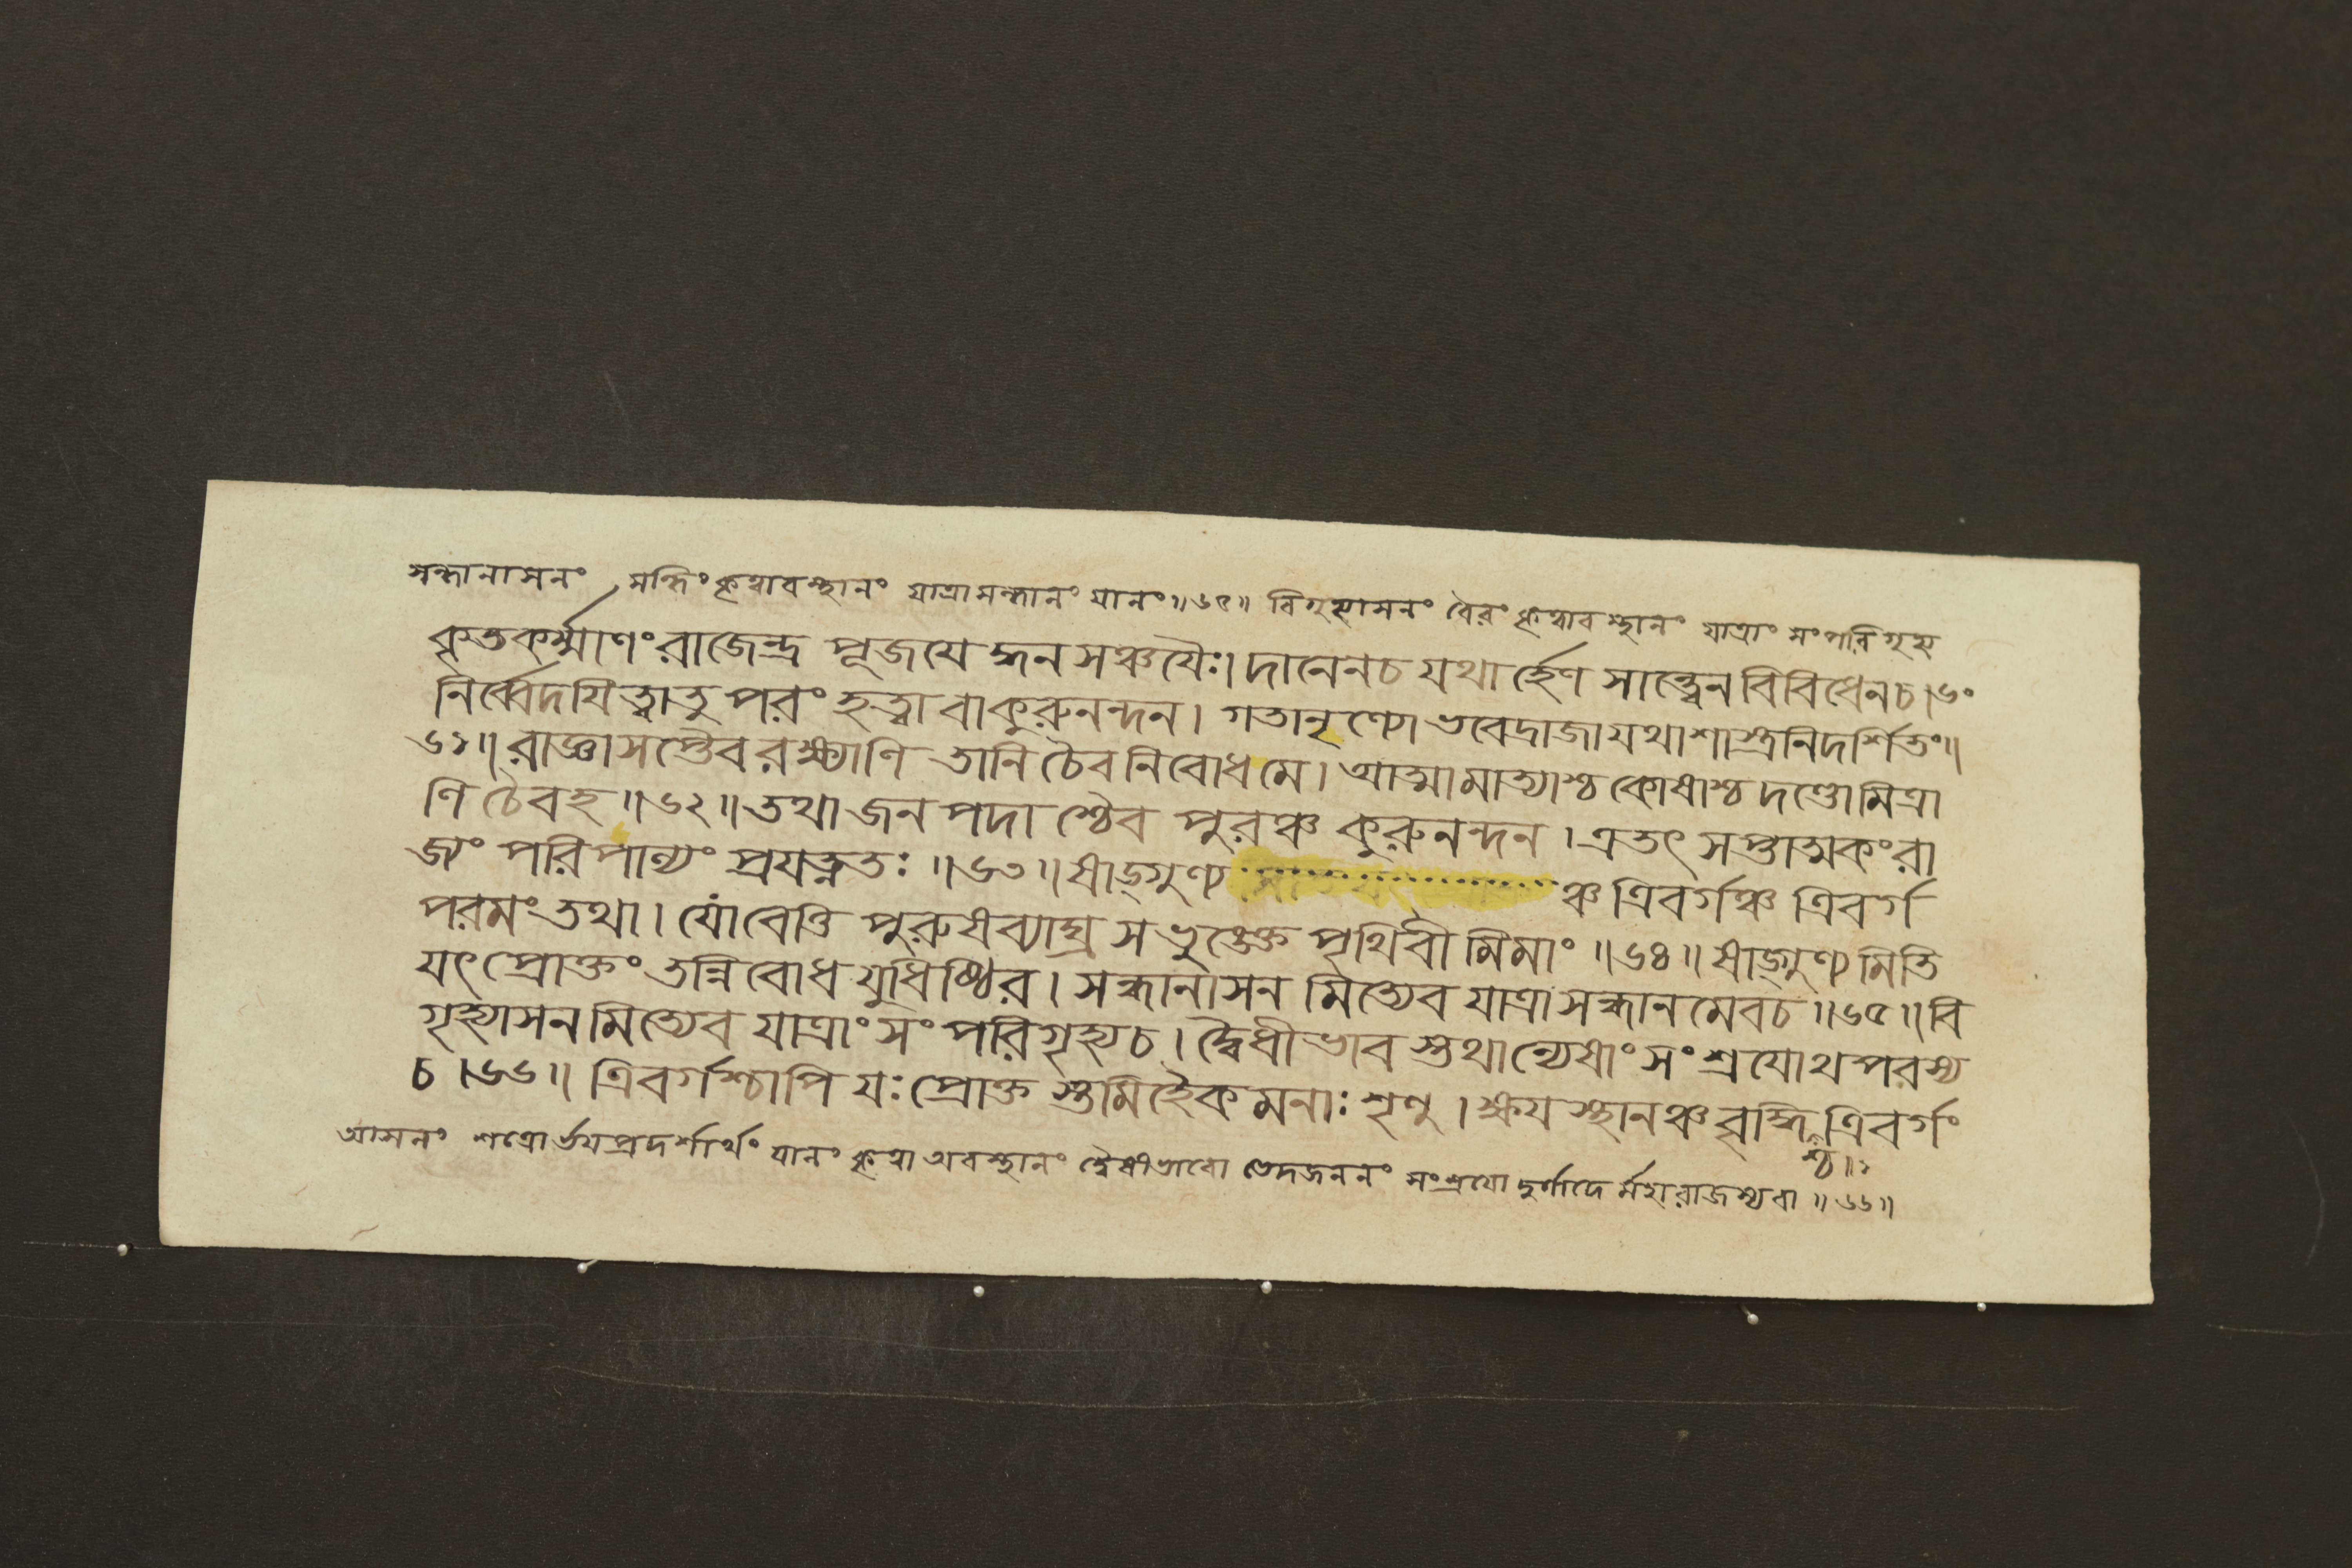 সন্ধানাসনং সন্ধিং কৃত্বাবস্থানং যাত্রাসন্ধানং যানং॥৬৫॥ বিগৃহ্যাসনং বৈরং কৃত্বাবস্থানং যাত্রাং সংপরিগৃহ্য
কৃতকর্ম্মাণং রাজেন্দ্র পূজয়েদ্ধনসঞ্চয়ৈঃ। দানেনচ যথার্হেণ সান্ত্বেন বিবিধেনচ।৬০
নির্ব্বেদয়িত্বাতু পরং হত্বা বাকুরুনন্দন। গতানৃণ্যো ভবেদ্রাজা যথাশাস্ত্রনিদর্শিতং॥
৬১॥ রাজ্ঞাসপ্তৈব রক্ষ্যাণি তানি চৈব নিবোধমে। আত্মামাত্যাশ্চ কোষাশ্চ দণ্ডোমিত্রা
ণি চৈবহ॥৬২॥ তথা জনপদাশ্চৈব পুরঞ্চ কুরুনন্দন। এতৎ সপ্তাত্মকং রা
জ্যং পরিপাল্যং প্রযত্নতঃ॥৬৩॥ ষাড্গুণ্য ঞ্চ ত্রিবর্গঞ্চ ত্রিবর্গ
পরমং তথা। যোবেত্তি পুরুষব্যাঘ্র সভুঙ্ক্তে পৃথিবীমিমাং॥৬৪॥ ষাড্গুণ্যমিতি
যৎ প্রোক্তং তন্নিবোধ যুধিষ্ঠির। সন্ধানাসনমিত্যেব যাত্রাসন্ধানমেবচ॥৬৫॥ বি
গৃহ্যাসনমিত্যেব যাত্রাং সংপরিগৃহ্যচ। দ্বৈধীভাবস্তথান্যেষাং সংশ্রয়োথপরস্য
চ।৬৬॥ ত্রিবর্গশ্চাপি যঃ প্রোক্তস্তমিহৈকমনাঃ শৃণু। ক্ষয়স্থানঞ্চ বৃদ্ধি ত্রিবর্গং
শ্চ॥১
আসনং শত্রোর্ভয়প্রদর্শার্থং যানং কৃত্বা অবস্থানং দ্বৈধীভাবো ভেদজননং সংশ্রয়ো দুর্গাদের্মহারাজস্যবা॥৬৬॥